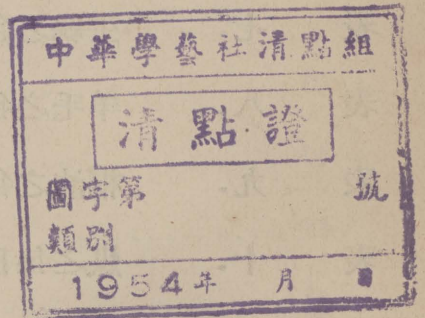 中華學藝社清點組
清點證
圖字第 號
類別
1954年 月 日